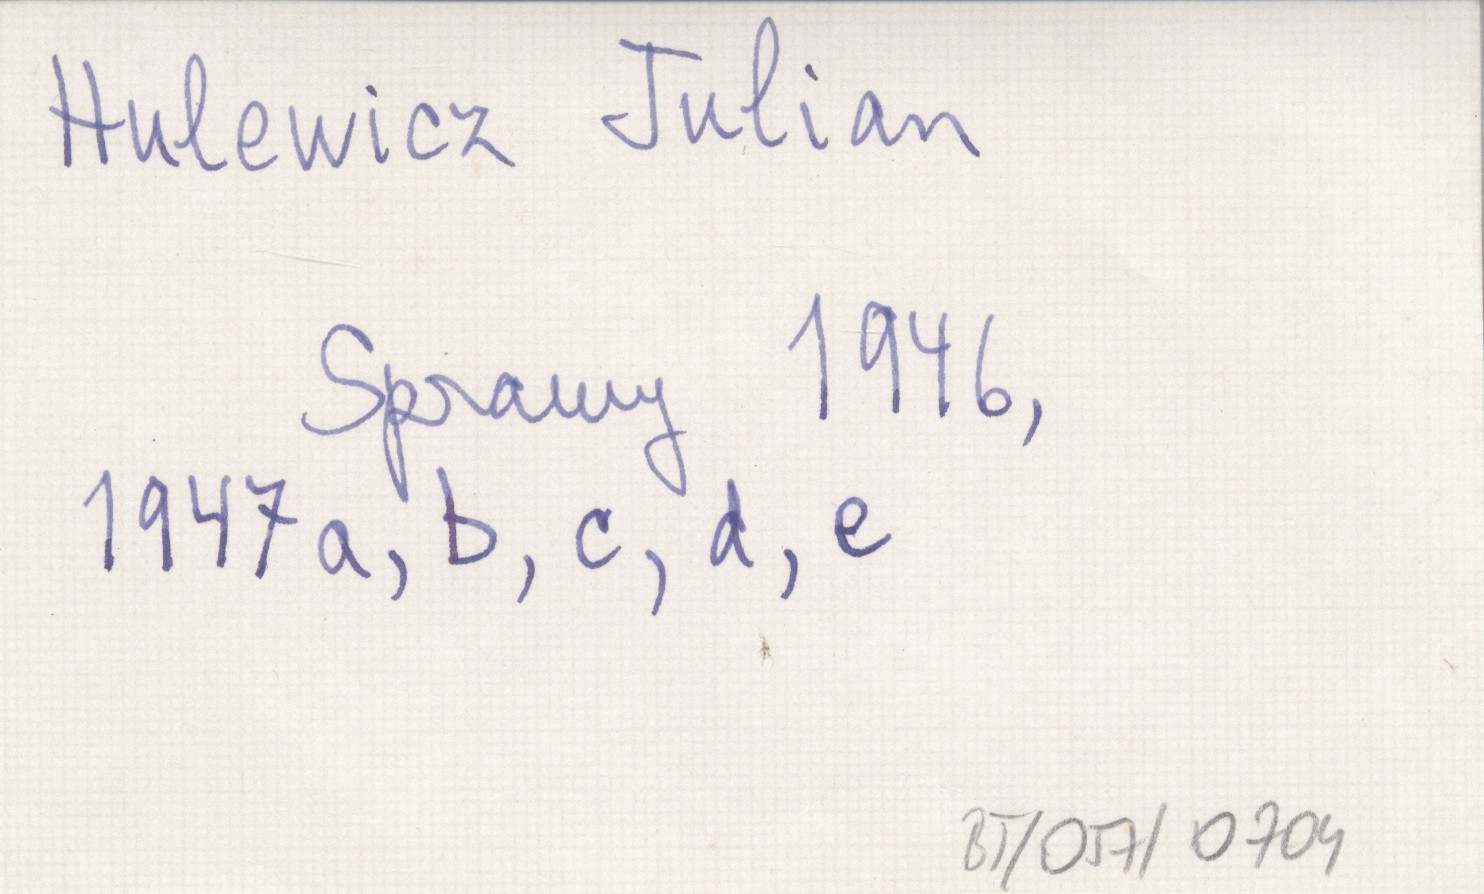 Hulewicz Julian
Sprawy 1946,
1947a, b, c, d, e
BT/057/0704